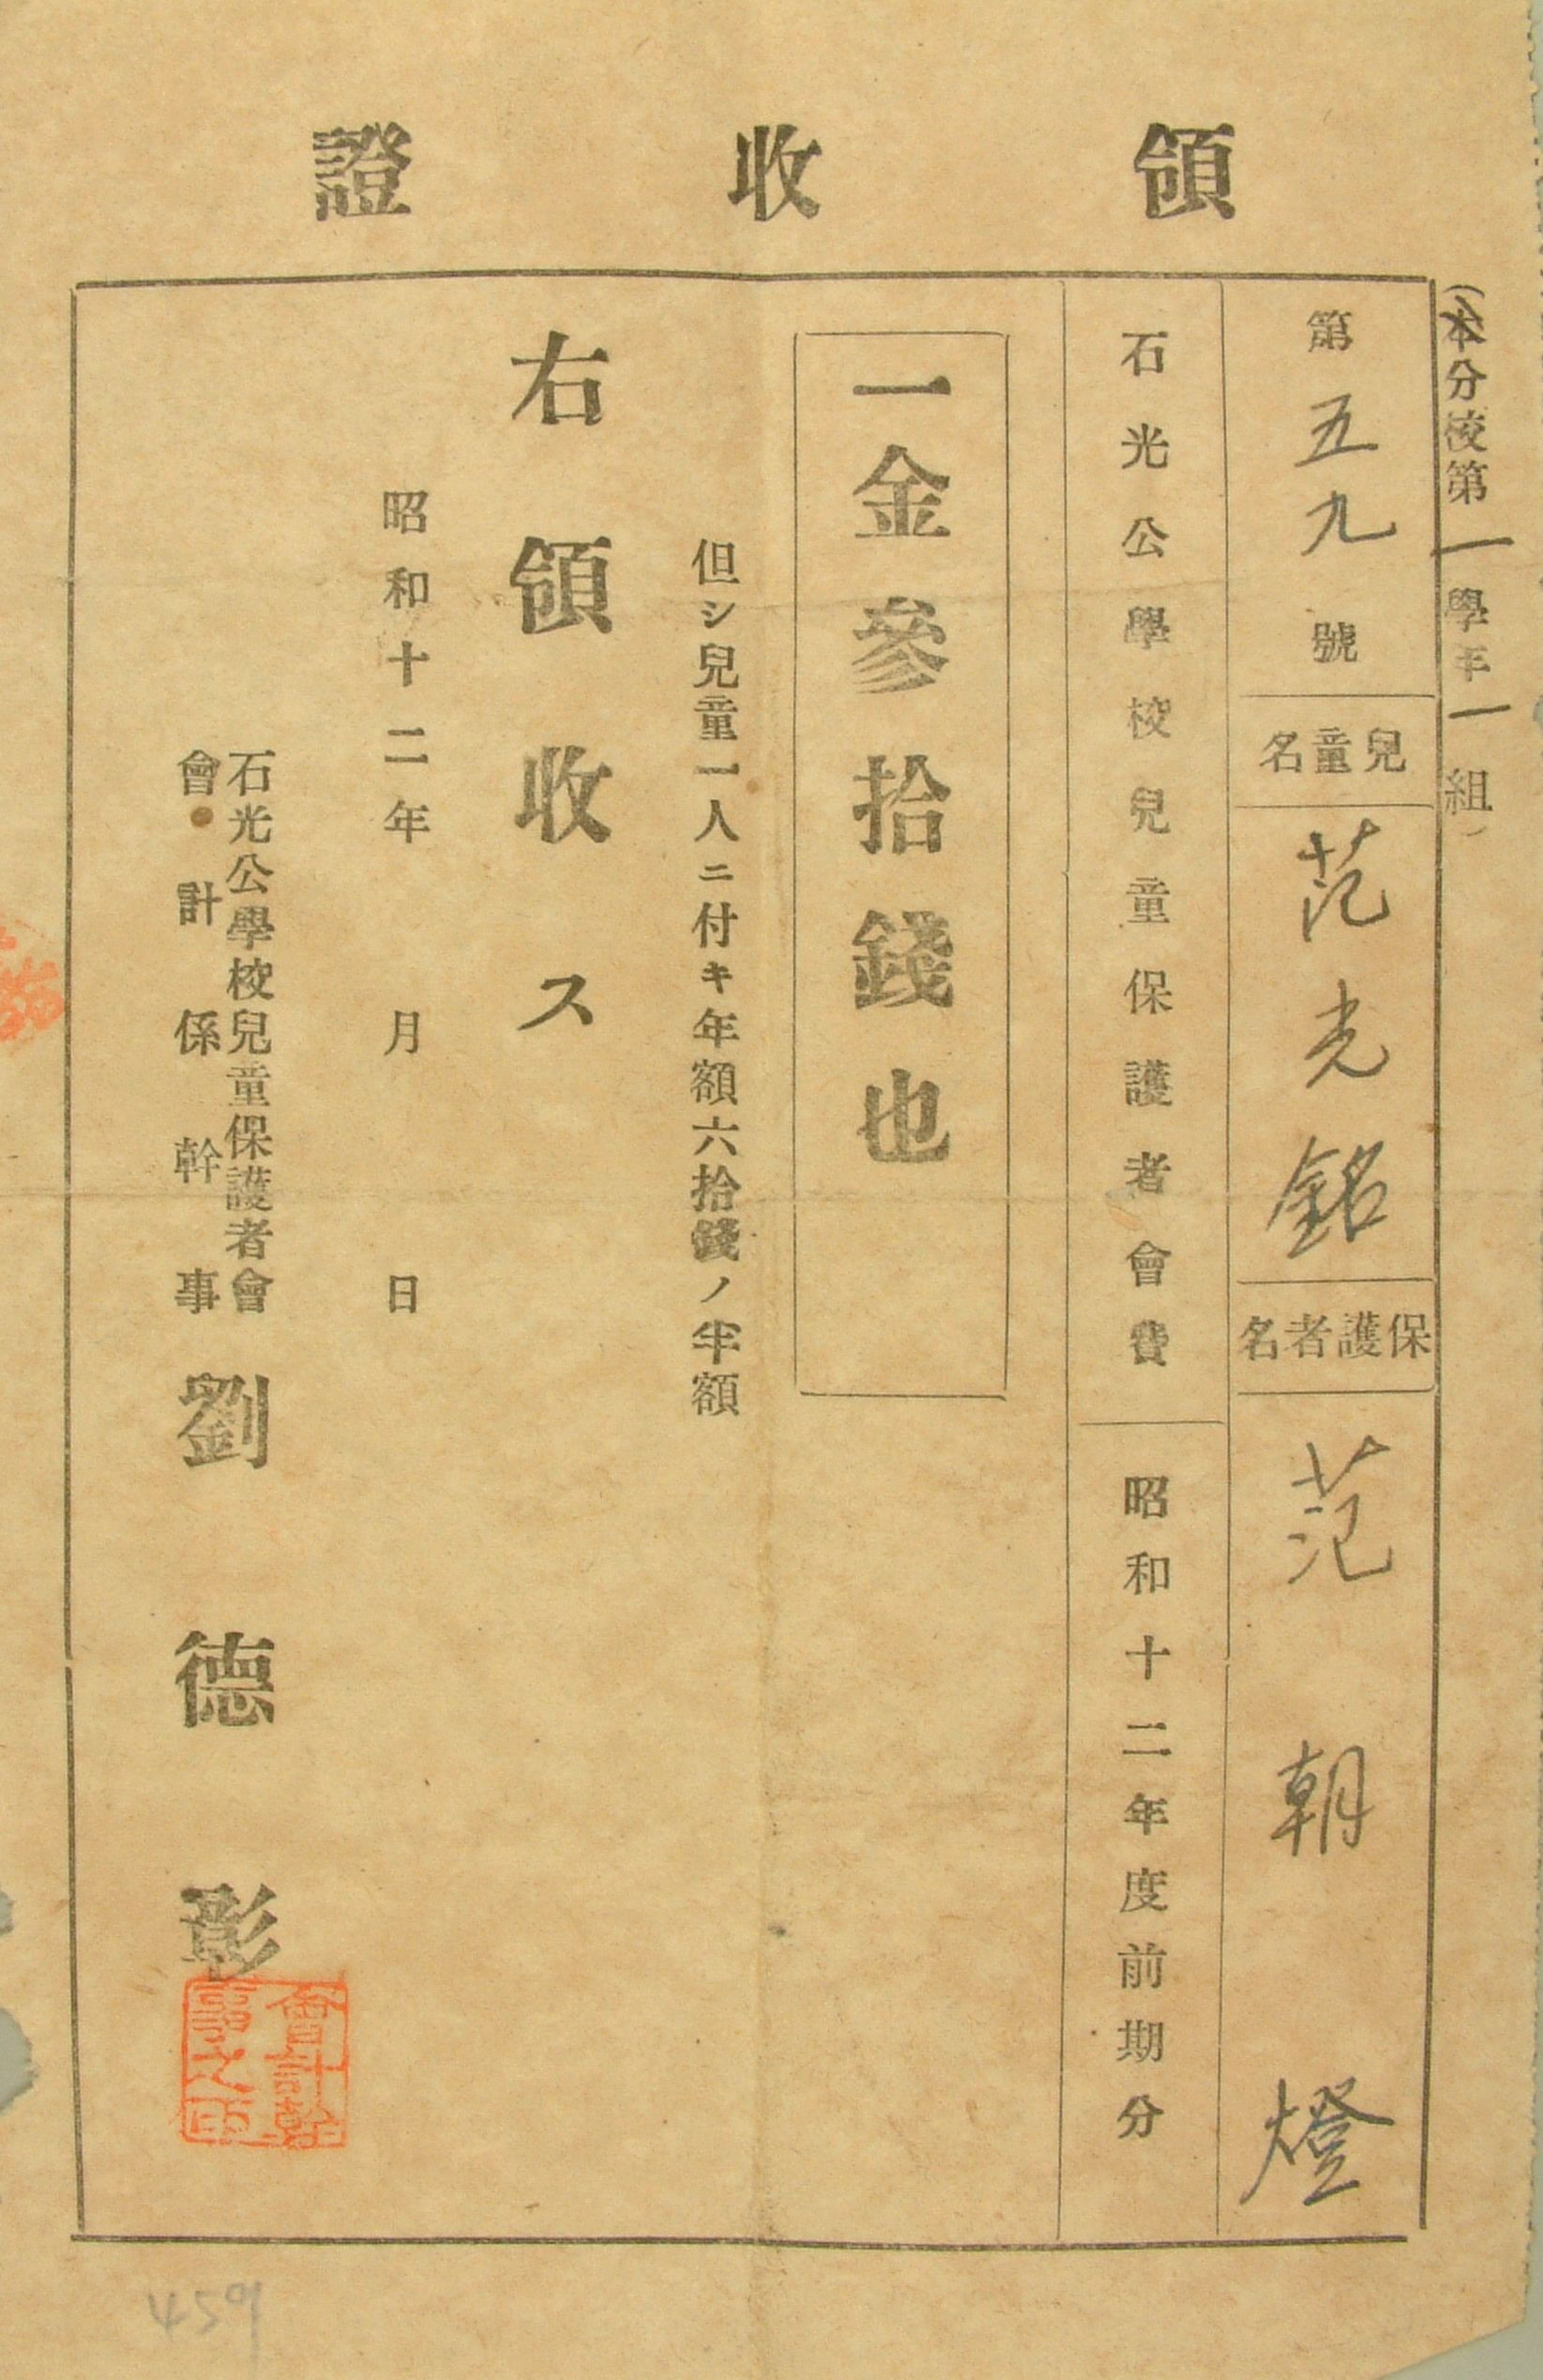 領收證
(本分校第一學年一組)
第五九號 兒童名 范光銘 保護者名 范朝燈
石光公學校兒童保護者會費 昭和十二年度前期分
一金參拾錢也
但シ兒童一人ニ付キ年額六拾錢ノ半額
右領收ス
昭和十二年 月 日
石光公學校兒童保護者會
會計係幹事 劉德彰
會計幹
事之印
459